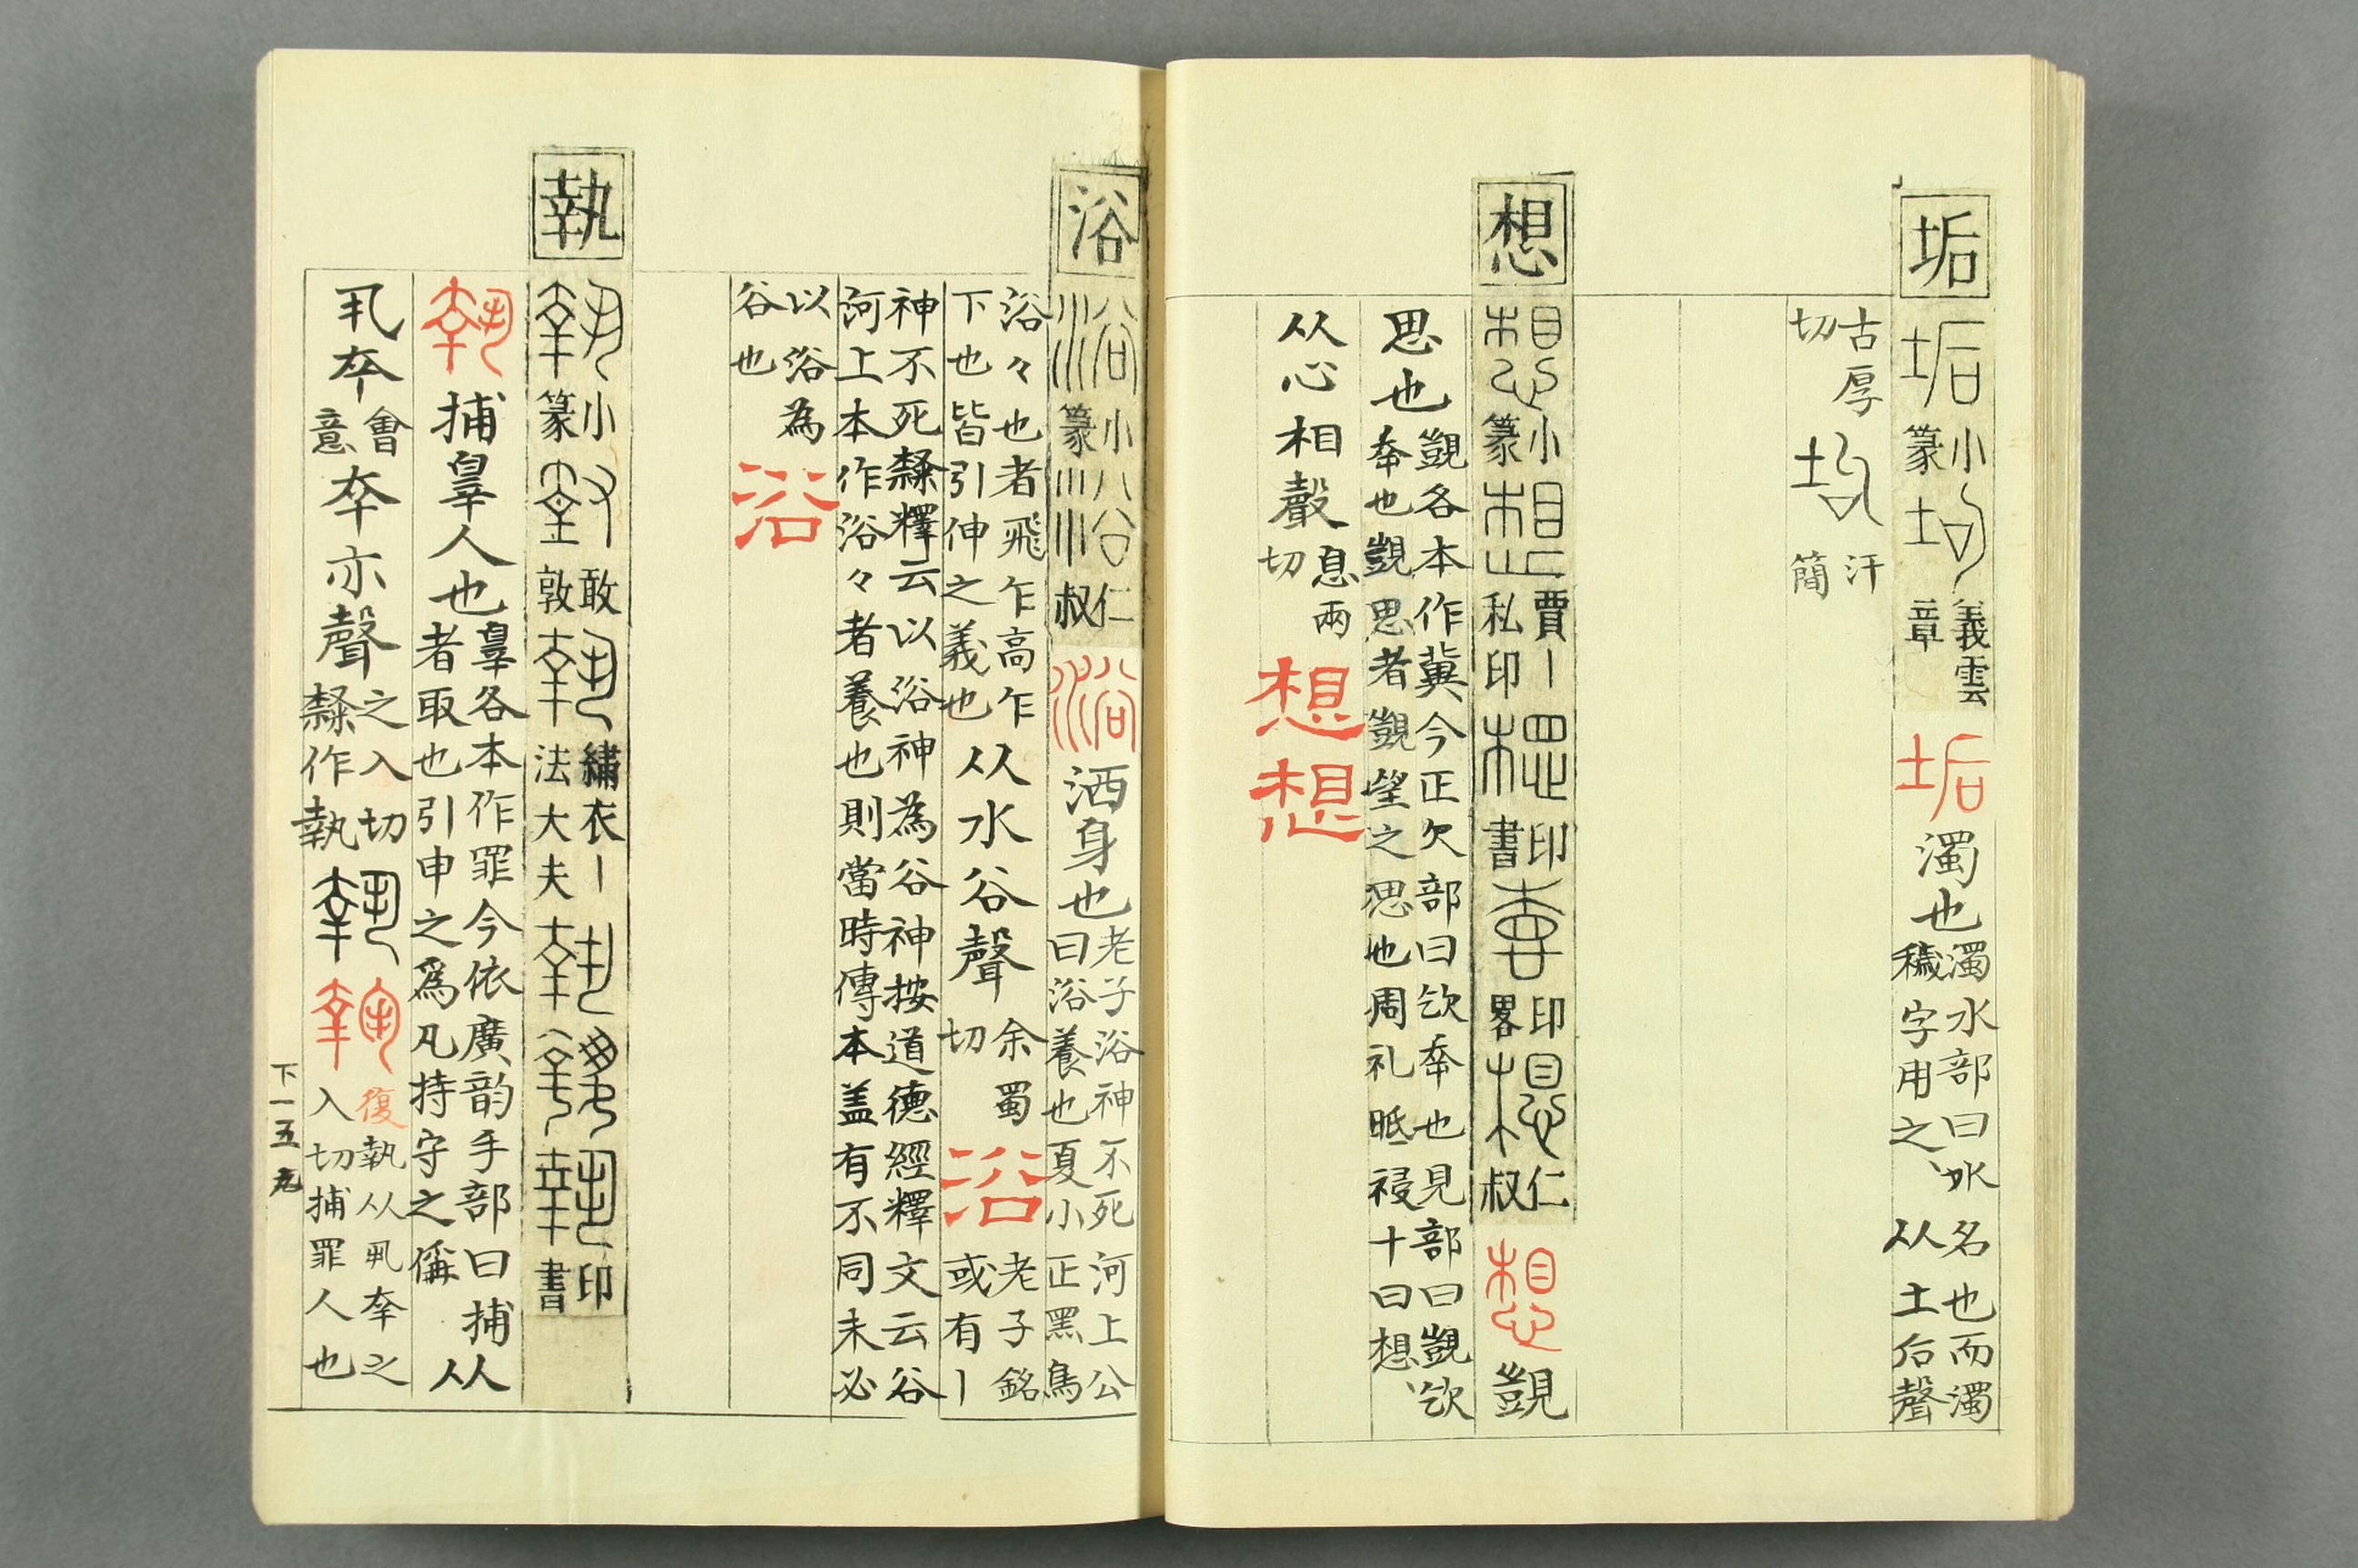 垢
垢 小篆 垢 義雲章 垢 濁也 濁水部曰水名也而濁
穢字用之、从土后聲
古厚切 垢 汗簡
想
想 小篆 想 賈丨私印 想 印書 印畧 想 仁叔 想 覬
思也 覬各本作冀今正欠部曰㰟㚔也見部曰覬㰟
㚔也覬思者覬望之思也周礼眡祲十曰想、
从心相聲 息兩切 想 想
浴
浴 小篆 浴 仁叔 浴 洒身也 老子浴神不死河上公
曰浴養也夏小正黑鳥
浴々也者飛乍高乍
下也皆引伸之義也 从水谷聲 余蜀切 浴 老子銘
或有丨
神不死隸釋云以浴神為谷神按道德經釋文云谷
河上本作浴々者養也則當時傳本盖有不同未必
以浴為
谷也 浴
執
執 小篆 執 敢敦 執 繡衣丨法大夫 執 執 執 印書
執 捕辠人也 辠各本作罪今依廣韵手部曰捕
者取也引申之爲凡持守之偁 从
丮㚔 會意 㚔亦聲 之入切
隸作執 執 執 復執从丮㚔之
入切捕罪人也
下一五